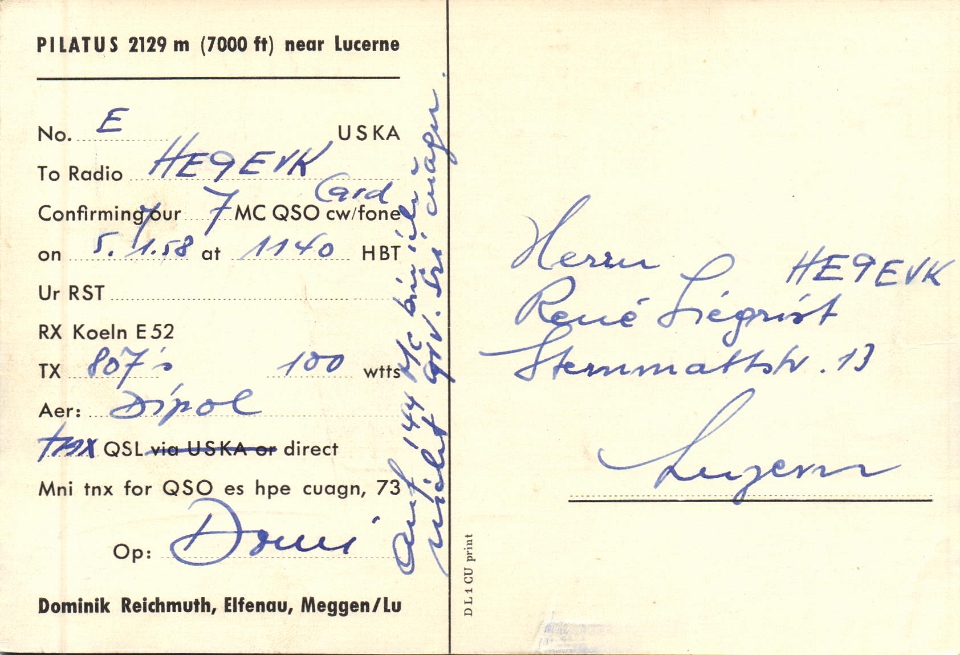 PILATUS 2129 m (7000 ft) near Lucerne
No. E USKA
To Radio HE9EVK
Card
Confirming your 7 MC QSO cw/fone
on 5.1.58 at 1140 HBT
Ur RST
RX Koeln E 52
TX 807's 100 wtts
Aer: Dipol
tnx QSL via USKA or direct
Mni tnx for QSO es hpe cuagn, 73
Op: Domi
Dominik Reichmuth, Elfenau, Meggen/Lu
Auf 144 Mc bin ich
nicht qrv. cuagn.
DL1CU print
Herrn HE9EVK
René Siegrist
Sternmattstr. 13
Luzern